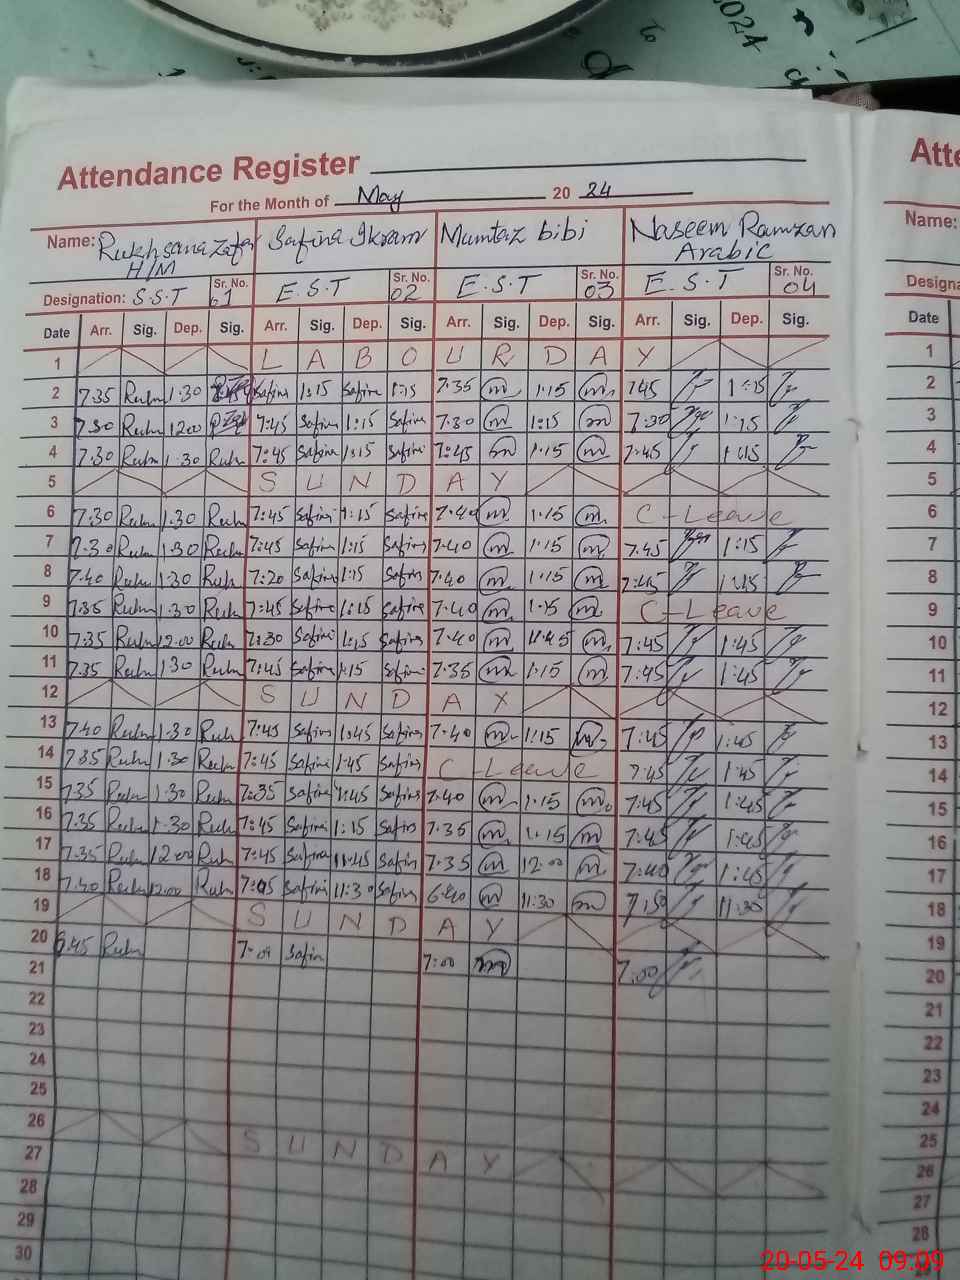 2024
To
Attendance Register
For the Month of May 20 24
Name: Rukhsana Zafar Safina Ikram Mumtaz bibi Naseem Ramzan
H/M Arabic
Designation: S.S.T Sr. No. 01 E.S.T Sr. No. 02 E.S.T Sr. No. 03 E.S.T Sr. No. 04
Date Arr. Sig. Dep. Sig. Arr. Sig. Dep. Sig. Arr. Sig. Dep. Sig. Arr. Sig. Dep. Sig.
1 L A B O U R D A Y
2 7.35 Rukh 1.30 Safina 1:15 Safina 1:15 7.35 m 1.15 m 7.45 1:15
3 7.30 Rukh 12.00 7:45 Safina 1:15 Safina 7.30 m 1:15 m 7:30 1:15
4 7.30 Rukh 1.30 Rukh 7:45 Safina 1:15 Safina 7:45 m 1.15 m 7.45 1:15
5 S U N D A Y
6 7.30 Rukh 1.30 Rukh 7:45 Safina 1:15 Safina 7.40 m 1.15 m C-Leave
7 7.30 Rukh 1.30 Rukh 7:45 Safina 1:15 Safina 7.40 m 1.15 m 7.45 1:15
8 7.40 Rukh 1:30 Rukh 7:20 Safina 1:15 Safina 7.40 m 1.15 m 7:45 1:45
9 7.35 Rukh 1.30 Rukh 7:45 Safina 1:15 Safina 7.40 m 1.15 m C-Leave
10 7.35 Rukh 12.00 Rukh 7:30 Safina 1:15 Safina 7.40 m 11.45 m 7:45 1:45
11 7.35 Rukh 1.30 Rukh 7:45 Safina 1:15 Safina 7.35 m 1.15 m 7:45 1:45
12 S U N D A Y
13 7.40 Rukh 1.30 Rukh 7:45 Safina 1:45 Safina 7.40 m 1:15 m 7:45 1:45
14 7.35 Rukh 1.30 Rukh 7:45 Safina 1:45 Safina C-Leave 7:45 1:45
15 7.35 Rukh 1.30 Rukh 7:35 Safina 1:45 Safina 7.40 m 1.15 m 7:45 1:45
16 7.35 Rukh 1.30 Rukh 7:45 Safina 1:15 Safina 7.35 m 1.15 m 7:45 1:45
17 7.35 Rukh 12.00 Rukh 7:45 Safina 11:45 Safina 7.35 m 12.00 m 7:40 1:45
18 7.30 Rukh 12.00 Rukh 7:05 Safina 11:30 Safina 6.40 m 11:30 m 7:50 11:30
19 S U N D A Y
20 6.45 Rukh 7:01 Safina 7:00 m 7:00
21
22
23
24
25
26 S U N D A Y
27
28
29
30
Atte
Name:
Designa
Date
1
2
3
4
5
6
7
8
9
10
11
12
13
14
15
16
17
18
19
20
21
22
23
24
25
26
27
28
20-05-24 09:09